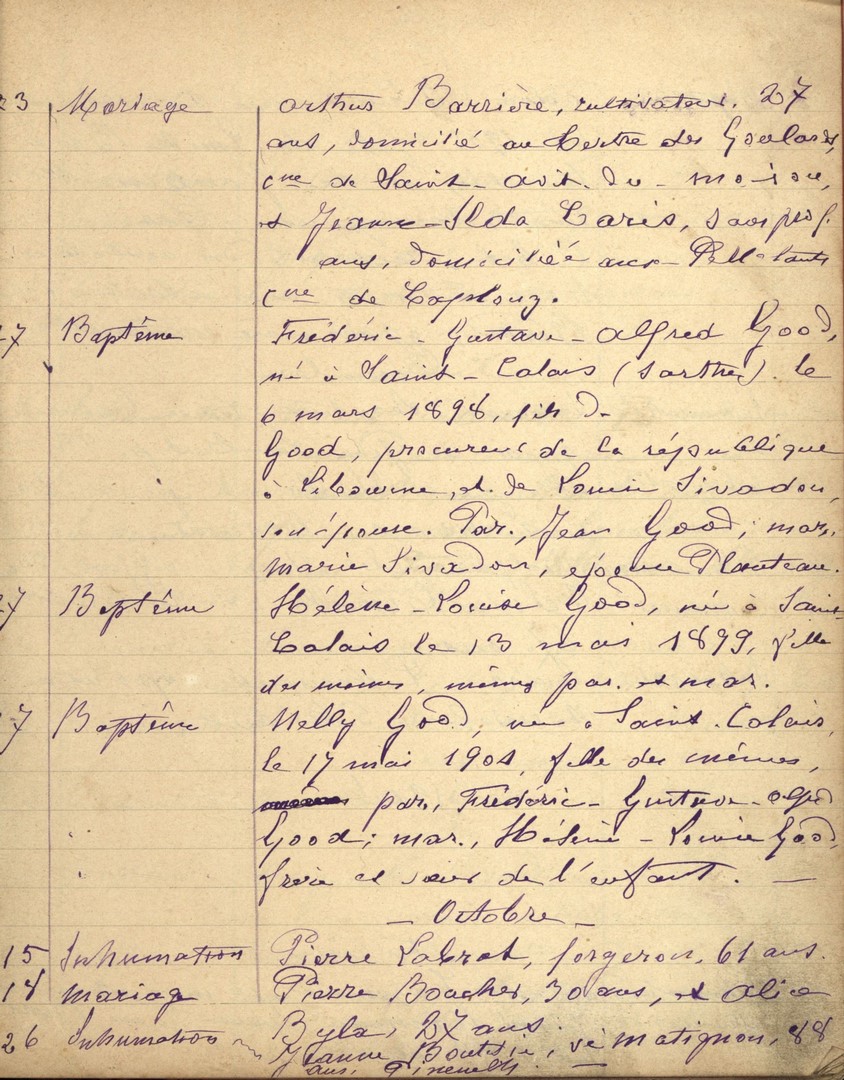 23 Mariage Arthus Barrière, cultivateur. 27
ans, domicilié au Tertre des Goulards,
cne de Saint-Avit-du-Moiron,
et Jeanne-Ilda Carès, sans prof.
ans, domiciliée aux
cne de Caplong.
27 Baptême Frédéric-Gustave-Alfred Good,
né à Saint-Calais (Sarthe). le
6 mars 1898, fils de
Good, procureur de la république
à Libourne, et de Louise Sivadon,
son épouse. Par., Jean Good; mar.,
marie Sivadon, épouse Planteau.
27 Baptême Hélène-Louise Good, née à Saint-
Calais le 13 mai 1899, fille
des mêmes, mêmes par. et mar.
27 Baptême Nelly Good, née à Saint-Calais,
le 17 mai 1901, fille des mêmes,
par., Frédéric-Gustave-Alfred
Good; mar., Hélène-Louise Good,
frère et sœur de l'enfant. —
— Octobre —
15 Inhumation Pierre Labrot, forgeron, 61 ans.
18 mariage Pierre Boucher, 30 ans, et Alice
Byla, 27 ans.
26 Inhumation Jeanne, ve Matignon, 88
ans,